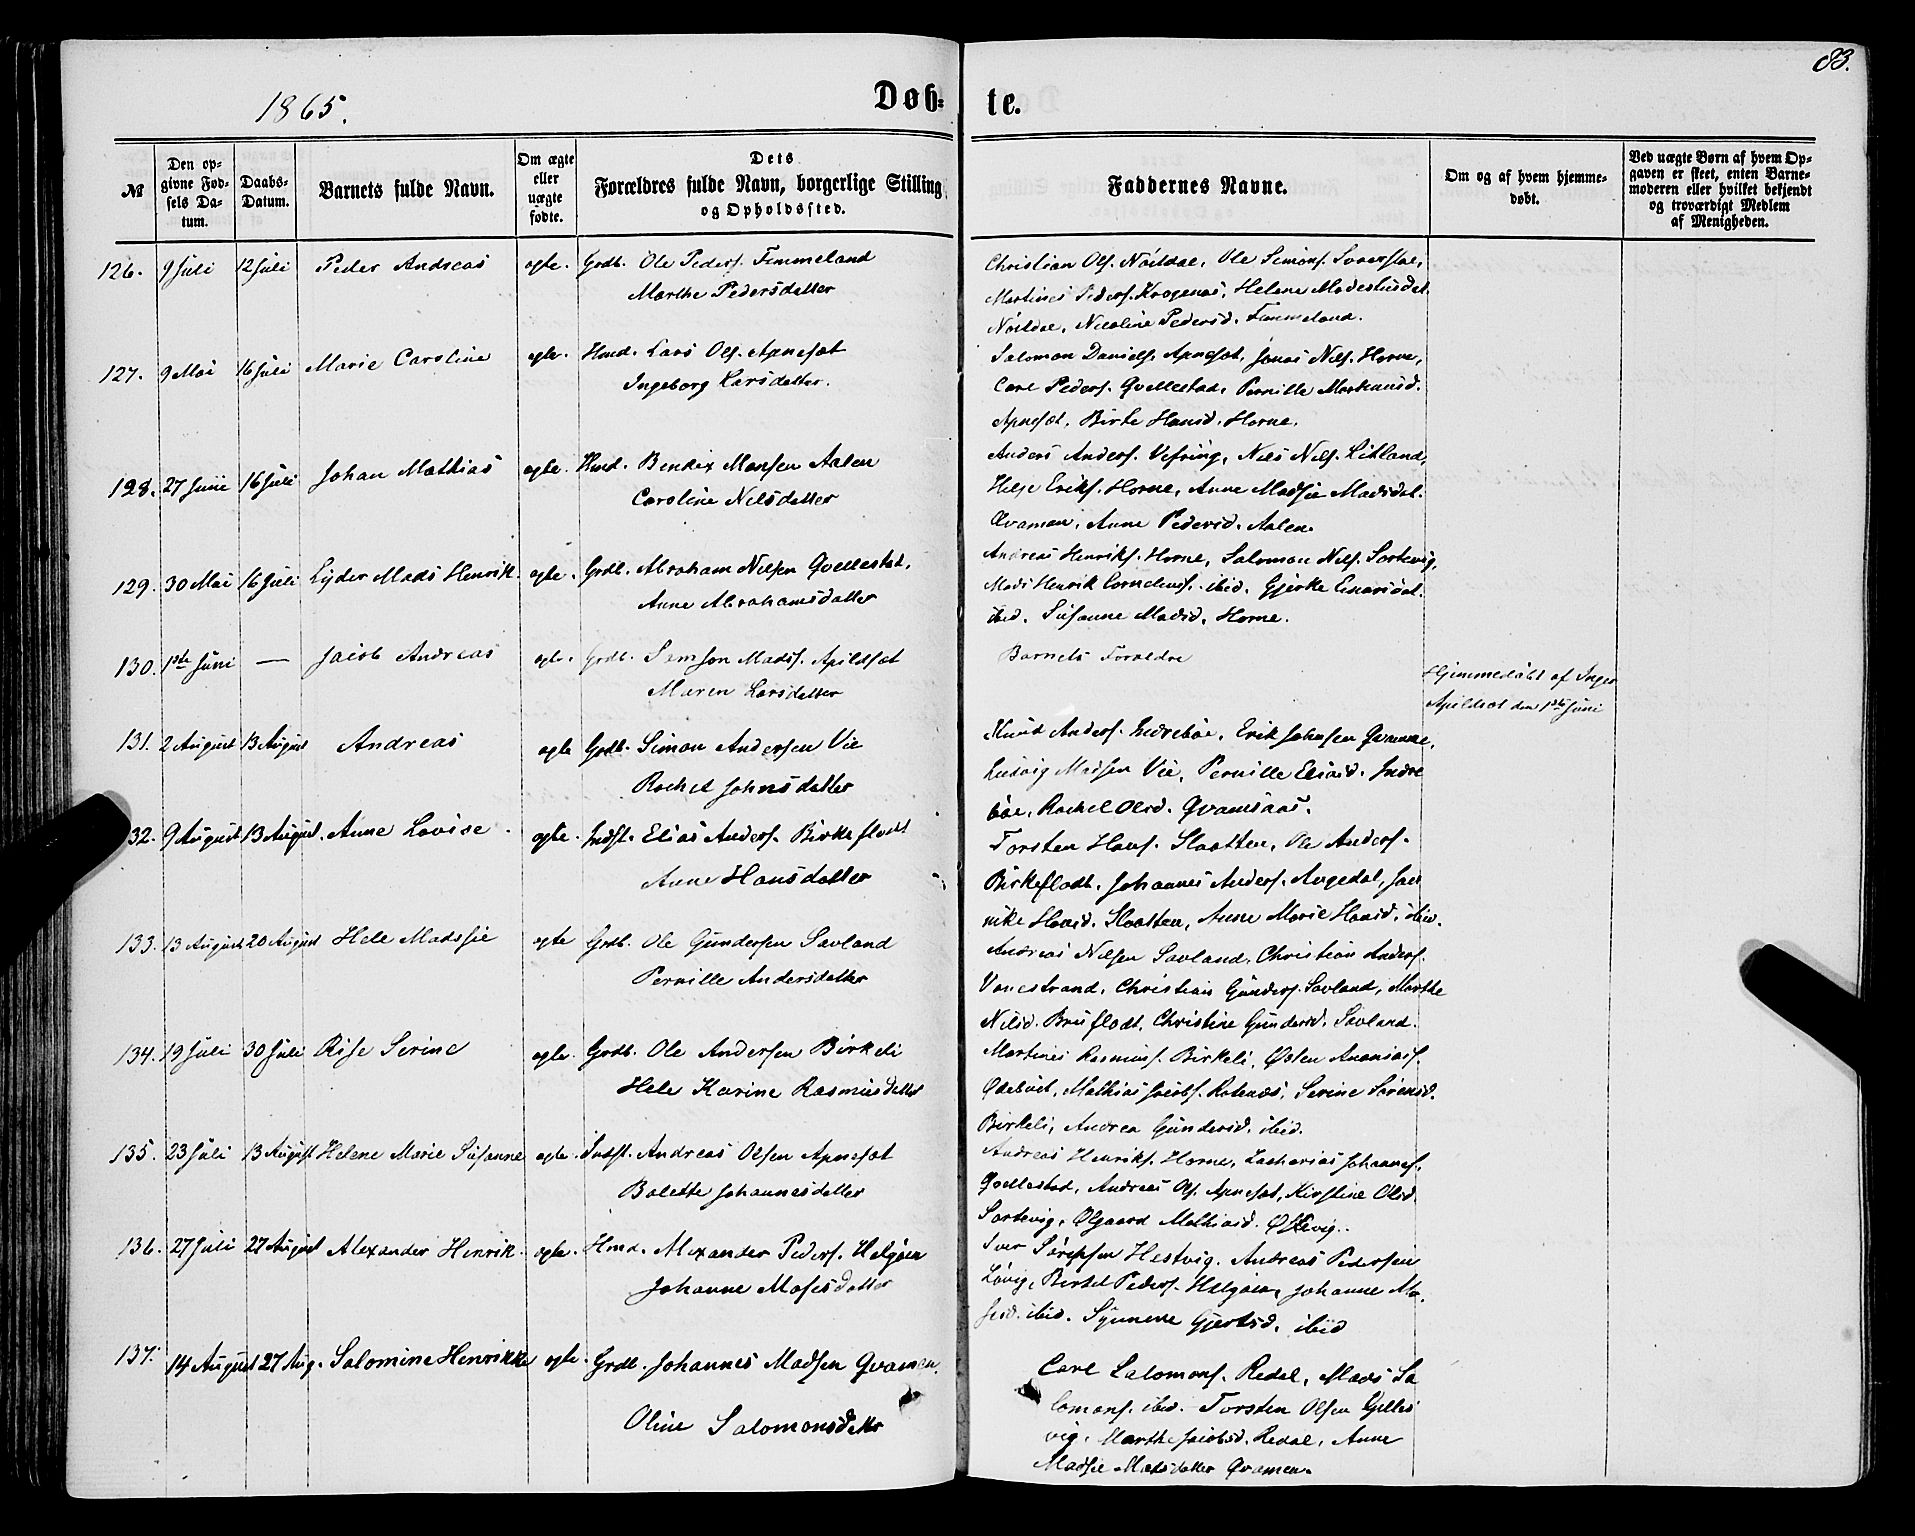 83.
1865.
Døb-
te.
№
Den op-
givne Fød-
sels Da-
tum.
Daabs-
Datum.
Barnets fulde Navn.
Om ægte
eller
uægte
fødte.
Dets
Forældres fulde Navn, borgerlige Stilling
og Opholdssted.
Faddernes Navne.
Om og af hvem hjemme-
døbt.
Ved uægte Børn af hvem Op-
gaven er skeet, enten Barne-
moderen eller hvilket bekjendt
og troværdigt Medlem
af Menigheden.
126. 9 Juli 12 Juli Peder Andreas ægte. Grdb. Ole Peders. Timmeland
Marthe Pedersdatter
Christian Ols. Ole Simons.
Martines Peders. Helene
Nicoline Pedersd. Timmeland.
127. 9 Mai 16 Juli Marie Caroline ægte. Hmd. Lars Ols. Apnesæt
Ingeborg Larsdatter.
Salomon Daniels. Apnesæt, Jonas Nils. Horne,
Carl Peders. Qvellestad, Pernille Markusd.
Apnesæt, Birte Hansd. Horne.
128. 27 Juni 16 Juli Johan Mathias ægte. Hmd. Bendix Monsen Aalen
Caroline Nilsdatter
Anders Anders. Vefring, Nils Nils. Litland,
Helge Eriks. Horne, Anne Madsie Madsdat.
Qvamen, Anne Pedersd. Aalen.
129. 30 Mai 16 Juli Lyder Mads Henrik. ægte. Grdb. Abraham Nilsen Qvellestad,
Anne Abrahamsdatter
Andreas Henriks. Horne, Salomon Nils. Sortevig,
Mads Henrik Cornelius. ibid. Gjerke Einarsdat.
ibid. Susanne Madsd. Horne.
130. 1ste Juni — Jacob Andreas ægte. Grdb. Samson Mads. Apildsæt
Maren Larsdatter
Barnets Forældre
Hjemmedøbt af Inger
Apildsæt den 1ste Juni
131. 2 August 13 August Andreas ægte Grdb. Simon Andersen Vie
Rachel Johnsdatter
Knud Anders. Indrebøe, Erik Johnsen Qvamme,
Ludvig Madsen Vie, Pernille Eliasd. Indre
bøe, Rachel Olsd. Qvamsaas.
132. 9 August 13 August. Anne Lovise ægte. Indst. Elias Anders. Birkeflodt
Anne Hansdatter
Torsten Hans. Slaatten, Ole Anders.
Birkeflodt. Johannes Anders. Angedal, Jan
nike Hansd. Slaatten, Anne Marie Hansd. ibid.
133. 13 August 20 August Hele Madssie ægte Grdb. Ole Gundersen Savland
Pernille Andersdatter
Andreas Nilsen Savland, Christian Anders.
Vonestrand, Christian Gunders. Savland, Marthe
Nilsd. Bruflodt, Christine Gundersd. Savland.
134. 19 Juli 30 Juli Rise Serine ægte. Grdb. Ole Andersen Birkeli
Hele Karine Rasmusdatter
Martines Rasmus. Birkeli, Østen Ananias.
Mathias Jacobs. Serine Sørensd.
Birkeli, Andrea Gundersd. ibid.
135. 23 Juli 13 August Helene Marie Susanne ægte. Indst. Andreas Olsen Apnesæt
Bolette Johannesdatter
Andreas Henriks. Horne, Zacharias Johannes.
Qvellestad, Andreas Ols. Apnesæt, Kirstine Olsd.
Sortevig, Olgaard Mathiasd.
136. 27 Juli 27 August Alexander Henrik. ægte. Hmd. Alexander Peders. Helgøen
Johanne Mosesdatter
Iver Hestvig. Andreas Pedersen
Løvig, Bertel Peders. Helgøen, Johanne Mo-
sesd. ibid. Synneve Gjertsd. ibid
137. 14 August 27 Aug. Salomine Henrikke ægte. Grdb. Johannes Madsen Qvamen.
Oline Salomonsdatter
Carl Salomons. Redal, Mads Sa
lomons. ibid. Torsten Olsen Gilles
vig, Marthe Jacobsd. Redal, Anne
Madsie Madsdatter Qvamen.